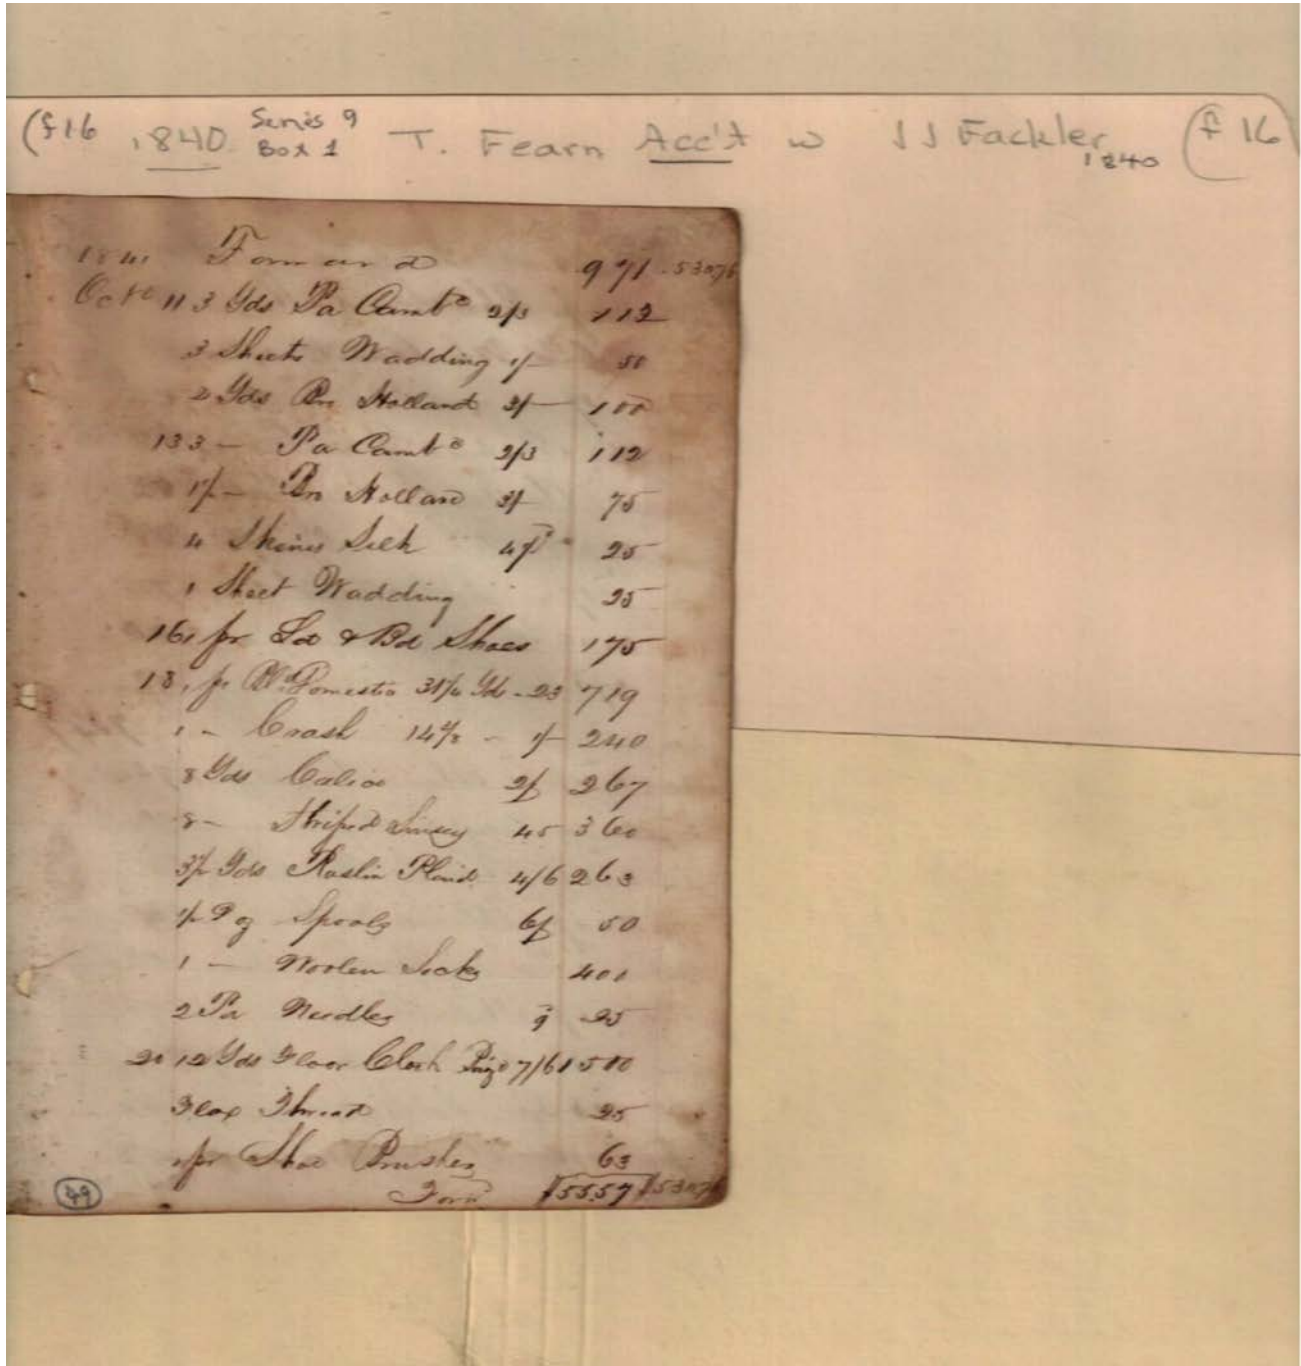 (f16 1840 Series 9 Box 1 T. Fearn Acc't w JJ Fackler 1840 (f 16
1841 Forward 971 53076
Octo 11 3 Yds Pa Camb 2/3 112
3 Sheets Wadding 1/- 50
2 Yds Bro Holland 3/- 100
13 3 - Pa Camb 2/3 112
1½ - Bro Holland 3/- 75
4 Skeins Silk 25
1 Sheet Wadding 25
16 1 pr Shoes 175
18 1 pc Domestic Yds - 23 719
1 - Crash 14⅜ - 1/- 240
8 Yds Calico 2/- 267
8 - Striped Linsey 45 360
3½ Yds Plaid 4/6 263
½ Doz Spools 6/- 50
1 - Woolen Socks 400
2 Pa Needles 9 25
20 12 Yds Floor Cloth 7/6 1500
Flax Thread 25
1 pr Shoe Brushes 63
Forw $55.57 $53076
49